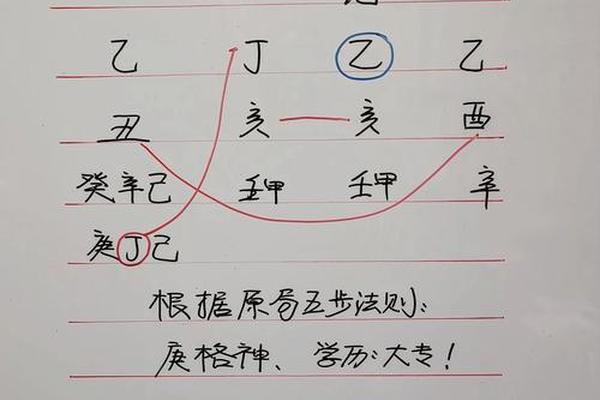 乙 丁 乙 乙
丑 亥 亥 酉
癸辛己 壬甲 壬甲 辛
庚丁己
根据原局五步法则:
庚格神、学历:大专!